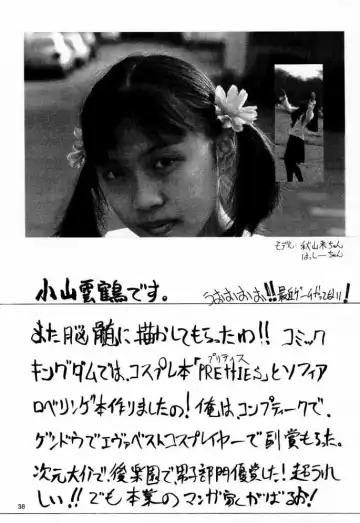 モデル：秋山未ちゃん
はっしーちゃん
小山雲鶴です。
うおおおお!!最近ゲームやってない!!
また脳髄に描かしてもらったわ!! コミック
キングダムでは、コスプレ本「PRETTIES」とソフィア
プリティス
ロベリンゲ本作りましたの!俺は、コンプティークで、
ゲンドウでエヴァベストコスプレイヤーで副賞もろた。
次元大介で、後楽園で男子部門優勝した!超うれ
しい!! でも本業のマンガ家がばるお!
38